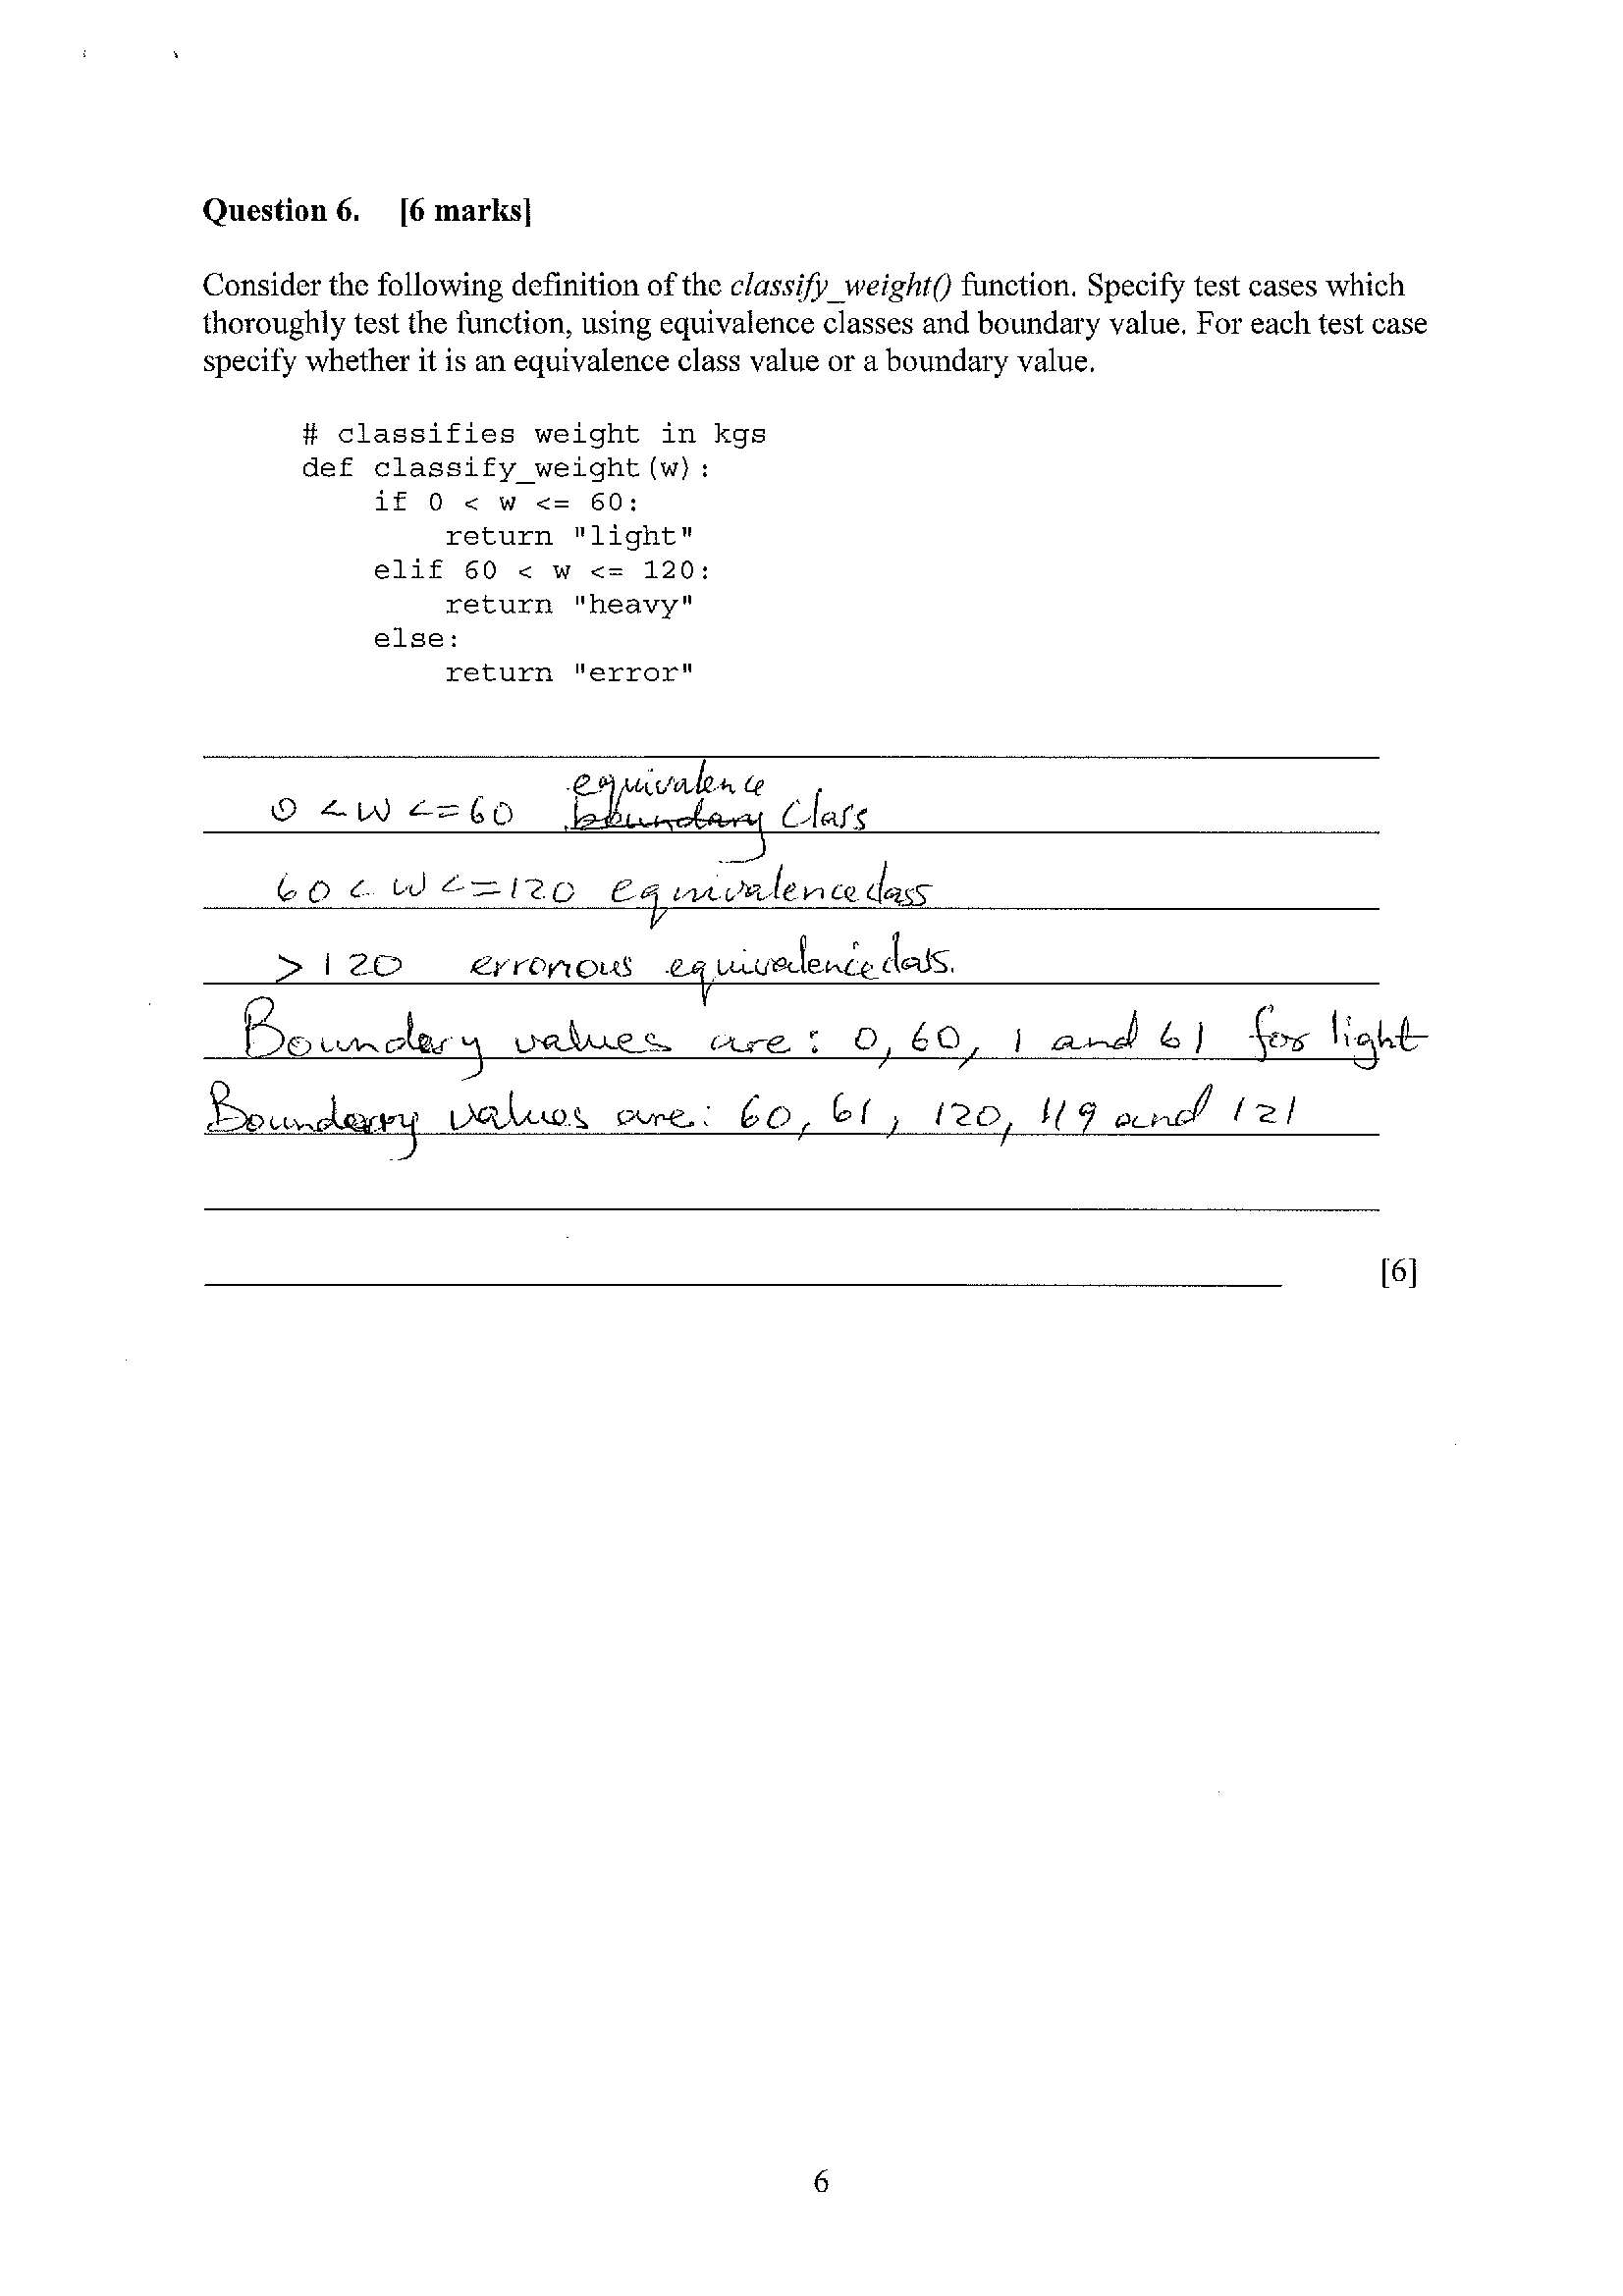 Question 6. [6 marks]
Consider the following definition of the classify_weight() function. Specify test cases which
thoroughly test the function, using equivalence classes and boundary value. For each test case
specify whether it is an equivalence class value or a boundary value.
# classifies weight in kgs
def classify_weight(w):
if 0 < w <= 60:
return "light"
elif 60 < w <= 120:
return "heavy"
else:
return "error"
equivalence
0 < W <= 60 boundary Class
60 < W <= 120 equivalence class
> 120 erronous equivalence class.
Boundary values are: 0, 60, 1 and 61 for light
Boundary values are: 60, 61, 120, 119 and 121
[6]
6